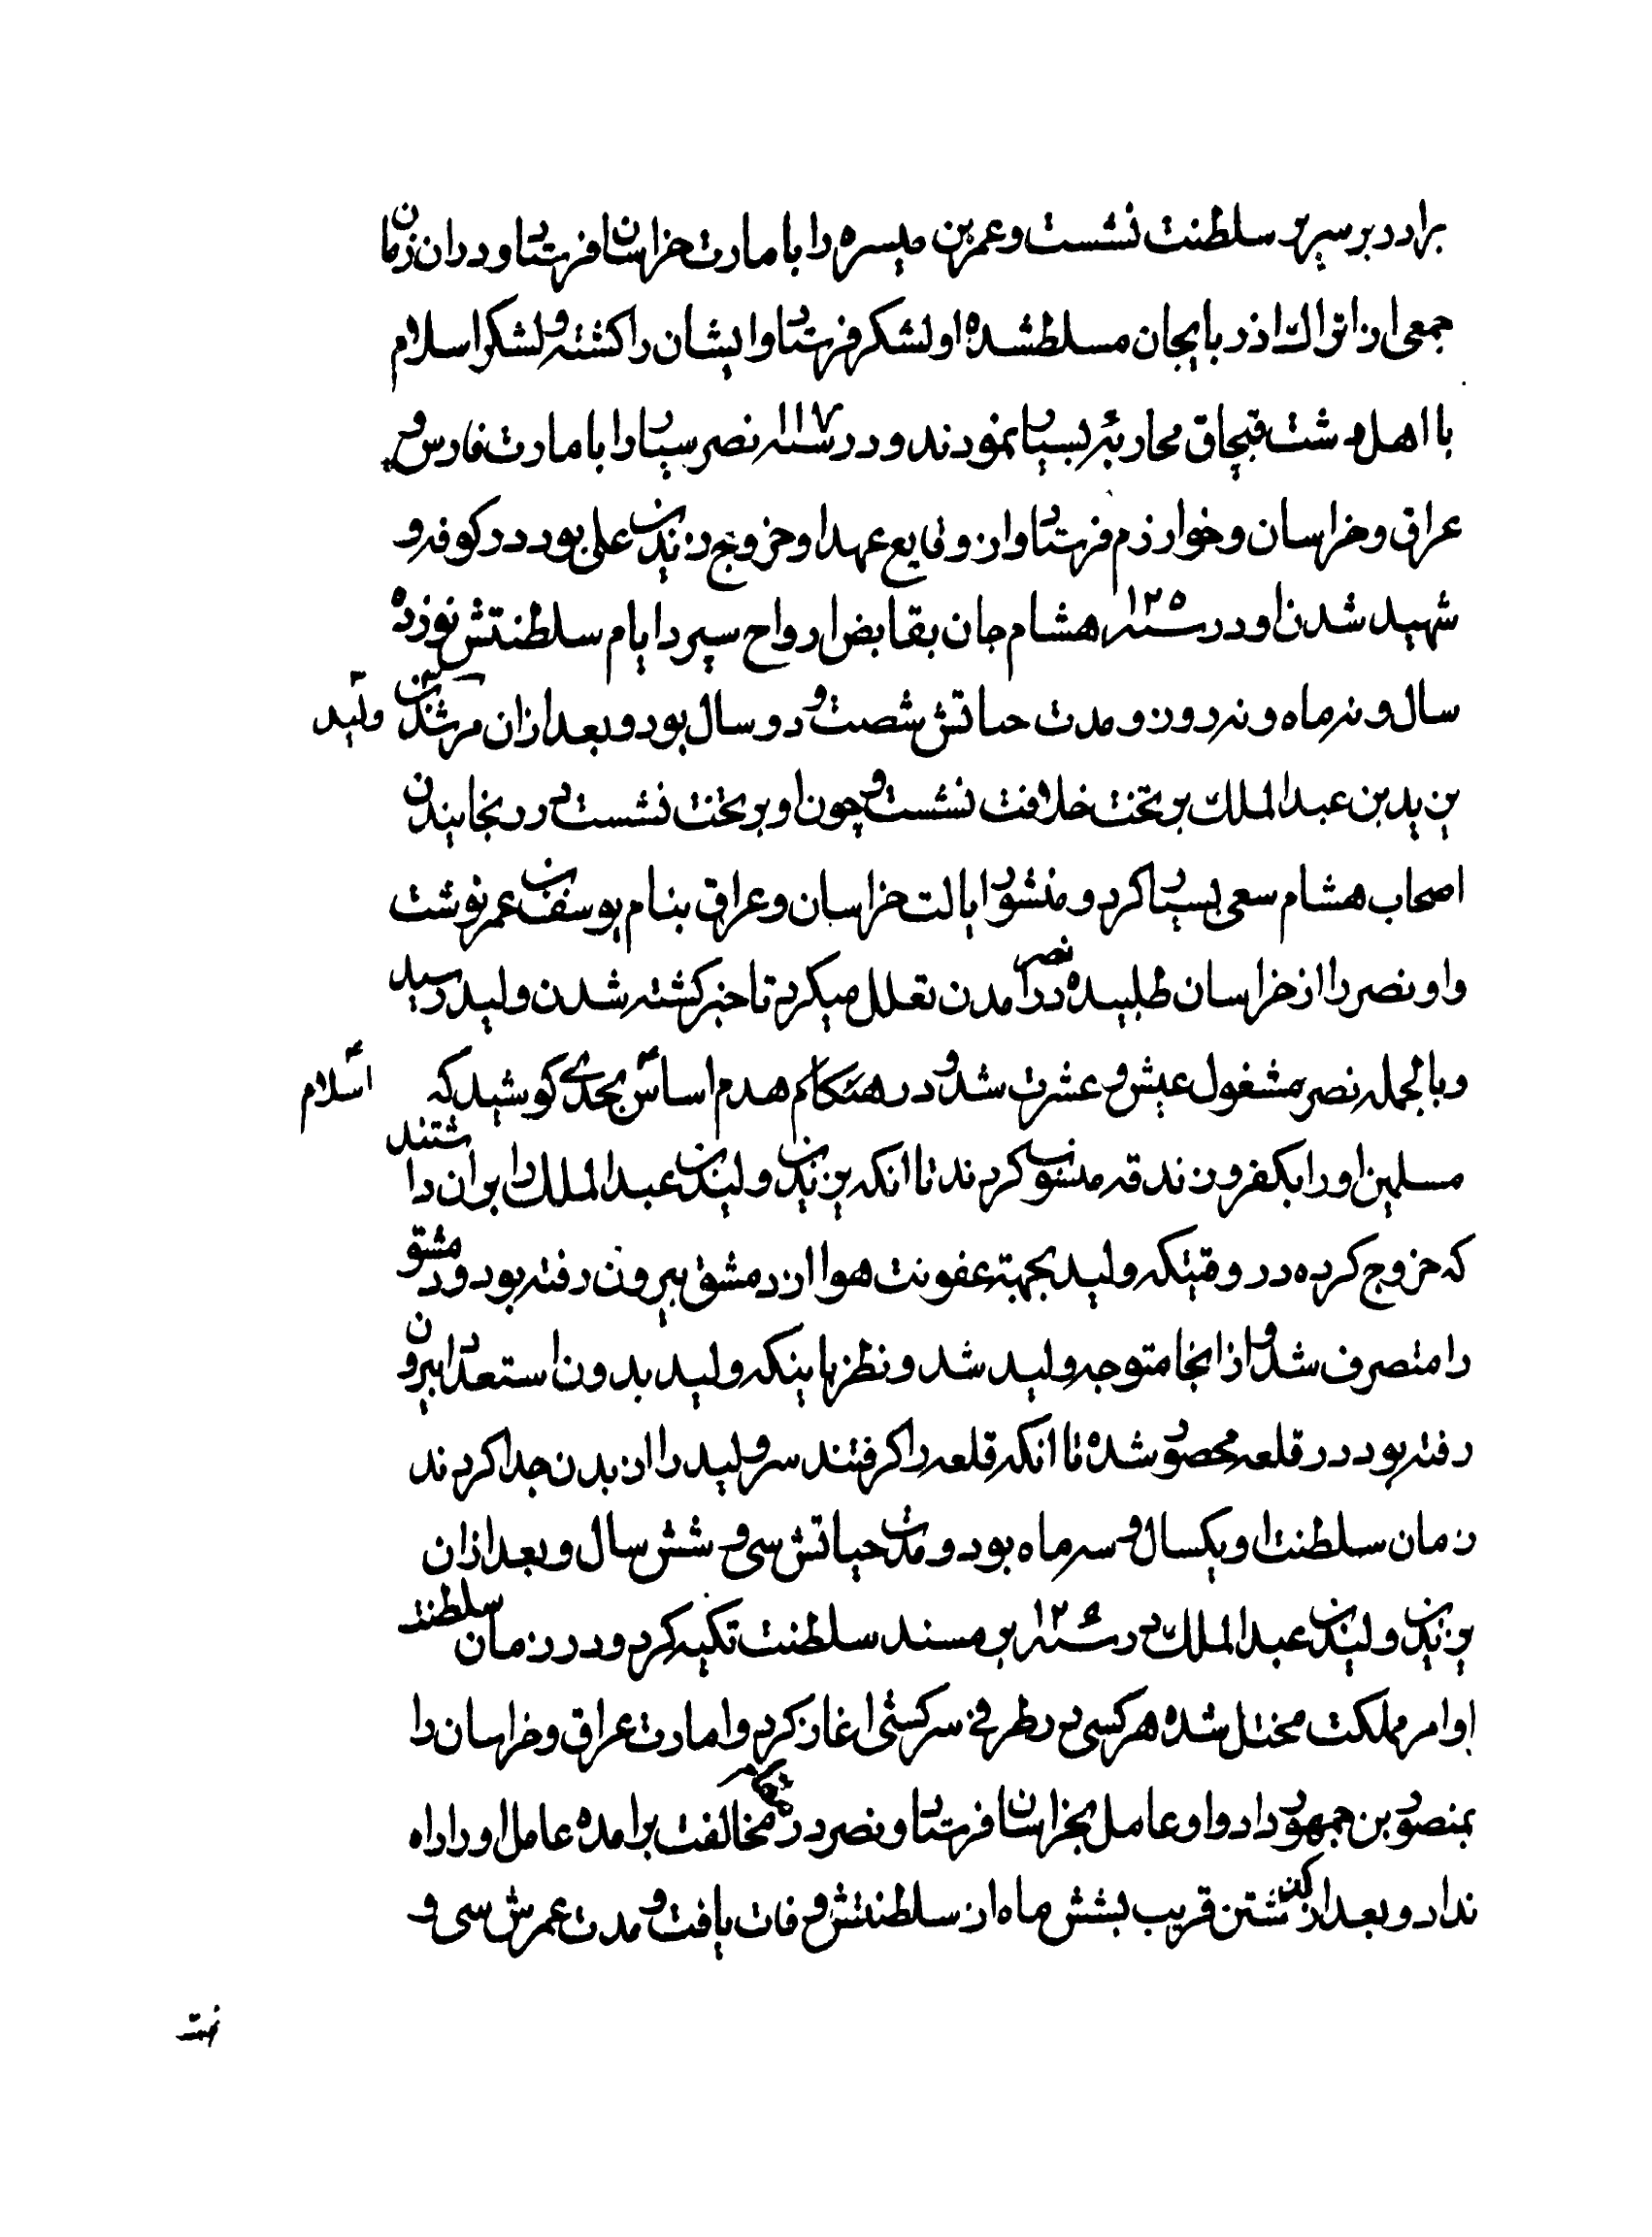 برادر بر سریر سلطنت نشست و عمر بن میسره را بامارت خراسان فرستاد و دران زمان
جمعی از اتراک اذربایجان مسلط شده او لشکر فرستاد و ایشان را کشته و لشکر اسلام
با اهل دشت قبچاق محاربهٔ بسیار نمودند و در سنه ۱۱۷ نصر سیار را بامارت فارس و
عراق و خراسان و خوارزم فرستاد و از وقایع عهد او خروج زید بن علی بود در کوفه و
شهید شدن او در سنه ۱۲۵ هشام جان بقابض ارواح سپرد ایام سلطنتش نوزده
سال و نه ماه و نه روز و مدت حیاتش شصت و دو سال بود و بعد ازان مرتد بن ولید
یزید بن عبدالملک بر تخت خلافت نشست و چون او بر تخت نشست در رنجانیدن
اصحاب هشام سعی بسیار کرد و منشور ایالت خراسان و عراق بنام یوسف بن عمر نوشت
و او نصر را از خراسان طلبیده نصر در امدن تعلل میکرد تا خبر کشته شدن ولید رسید
و بالجمله نصر مشغول عیش و عشرت شد و در هنکام هدم اساس اسلام بحدی کوشید که
مسلمین او را بکفر و زندقه منسوب کردند تا انکه یزید بن ولید بن عبدالملک را بران داشتند
که خروج کرده در وقتیکه ولید بجهته عفونت هوا از دمشق بیرون رفته بود و دمشق
را متصرف شد و از انجا متوجه ولید شد و نظر باینکه ولید بدون استعداد بیرون
رفته بود در قلعه محصور شده تا انکه قلعه را کرفتند سر ولید را از بدن جدا کردند
زمان سلطنت او یکسال و سه ماه بود و مدت حیاتش سی و شش سال و بعد ازان
یزید بن ولید بن عبدالملک در سنه ۱۲۶ بر مسند سلطنت تکیه کرد و در زمان سلطنت
او امر مملکت مختل شده هر کسی در طرفی سرکشی اغاز کرد و امارت عراق و خراسان را
بمنصور بن جمهور داد و او عامل بخراسان فرستاد و نصر در مخالفت برامده عامل او را راه
نداد و بعد از کذشتن قریب بشش ماه از سلطنتش وفات یافت و مدت عمرش سی و